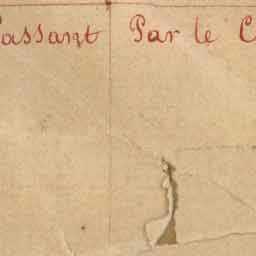 assant Par le C